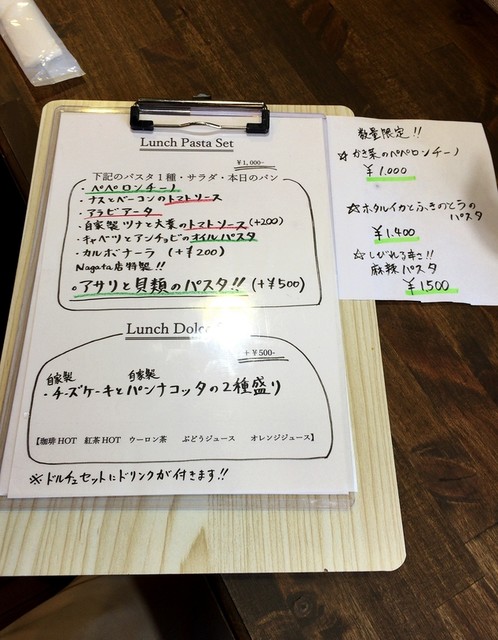 Lunch Pasta Set
¥1,000-
下記のパスタ1種・サラダ・本日のパン
・ペペロンチーノ
・ナスとベーコンのトマトソース
・アラビアータ
・自家製ツナと大葉のトマトソース(+200)
・キャベツとアンチョビのオイルパスタ
・カルボナーラ (+¥200)
Nagata店特製!!
・アサリと貝類のパスタ!! (+¥500)
Lunch Dolce
+¥500-
自家製 自家製
・チーズケーキとパンナコッタの2種盛り
【珈琲HOT 紅茶HOT ウーロン茶 ぶどうジュース オレンジジュース】
※ドルチェセットにドリンクが付きます!!
数量限定!!
☆かき菜のペペロンチーノ
¥1.000
☆ホタルイカとふきのとうの
パスタ
¥1.400
☆しびれる辛さ!!
麻辣パスタ
¥1500